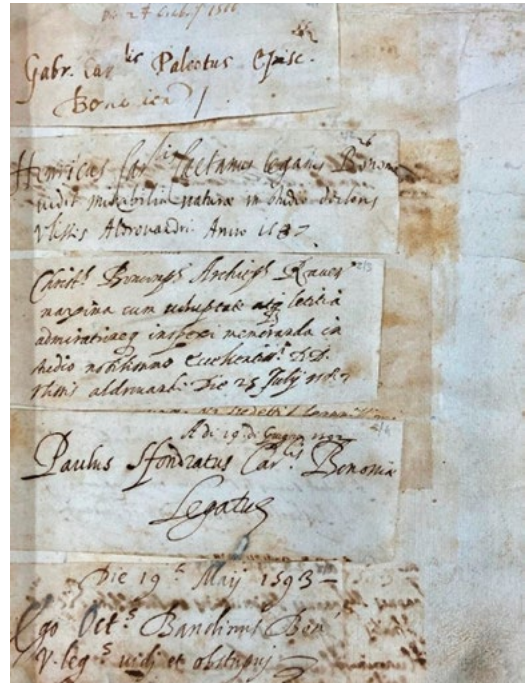 Die 27
Gabr. Carlis Paleotus Episc.
Bono
Henricus Carlis Caetanus legatus Bonon
vidit mirabilia naturæ in studio doctoris
Vlissis Aldrovandi. Anno 1587
Christs. Archieps Raven
maxima cum voluptate atq letitia
admirationeq inspexi memoranda in
studio Excellentiss. D.D.
Vlissis aldrovandi. Die 25 Julij 1587
A di 19 di Giugno
Paulus Sfondratus Carlis Bononiæ
Legatus
Die 19 Maij 1593
Ego Octs. Bandinus Bon
V. legs vidi et